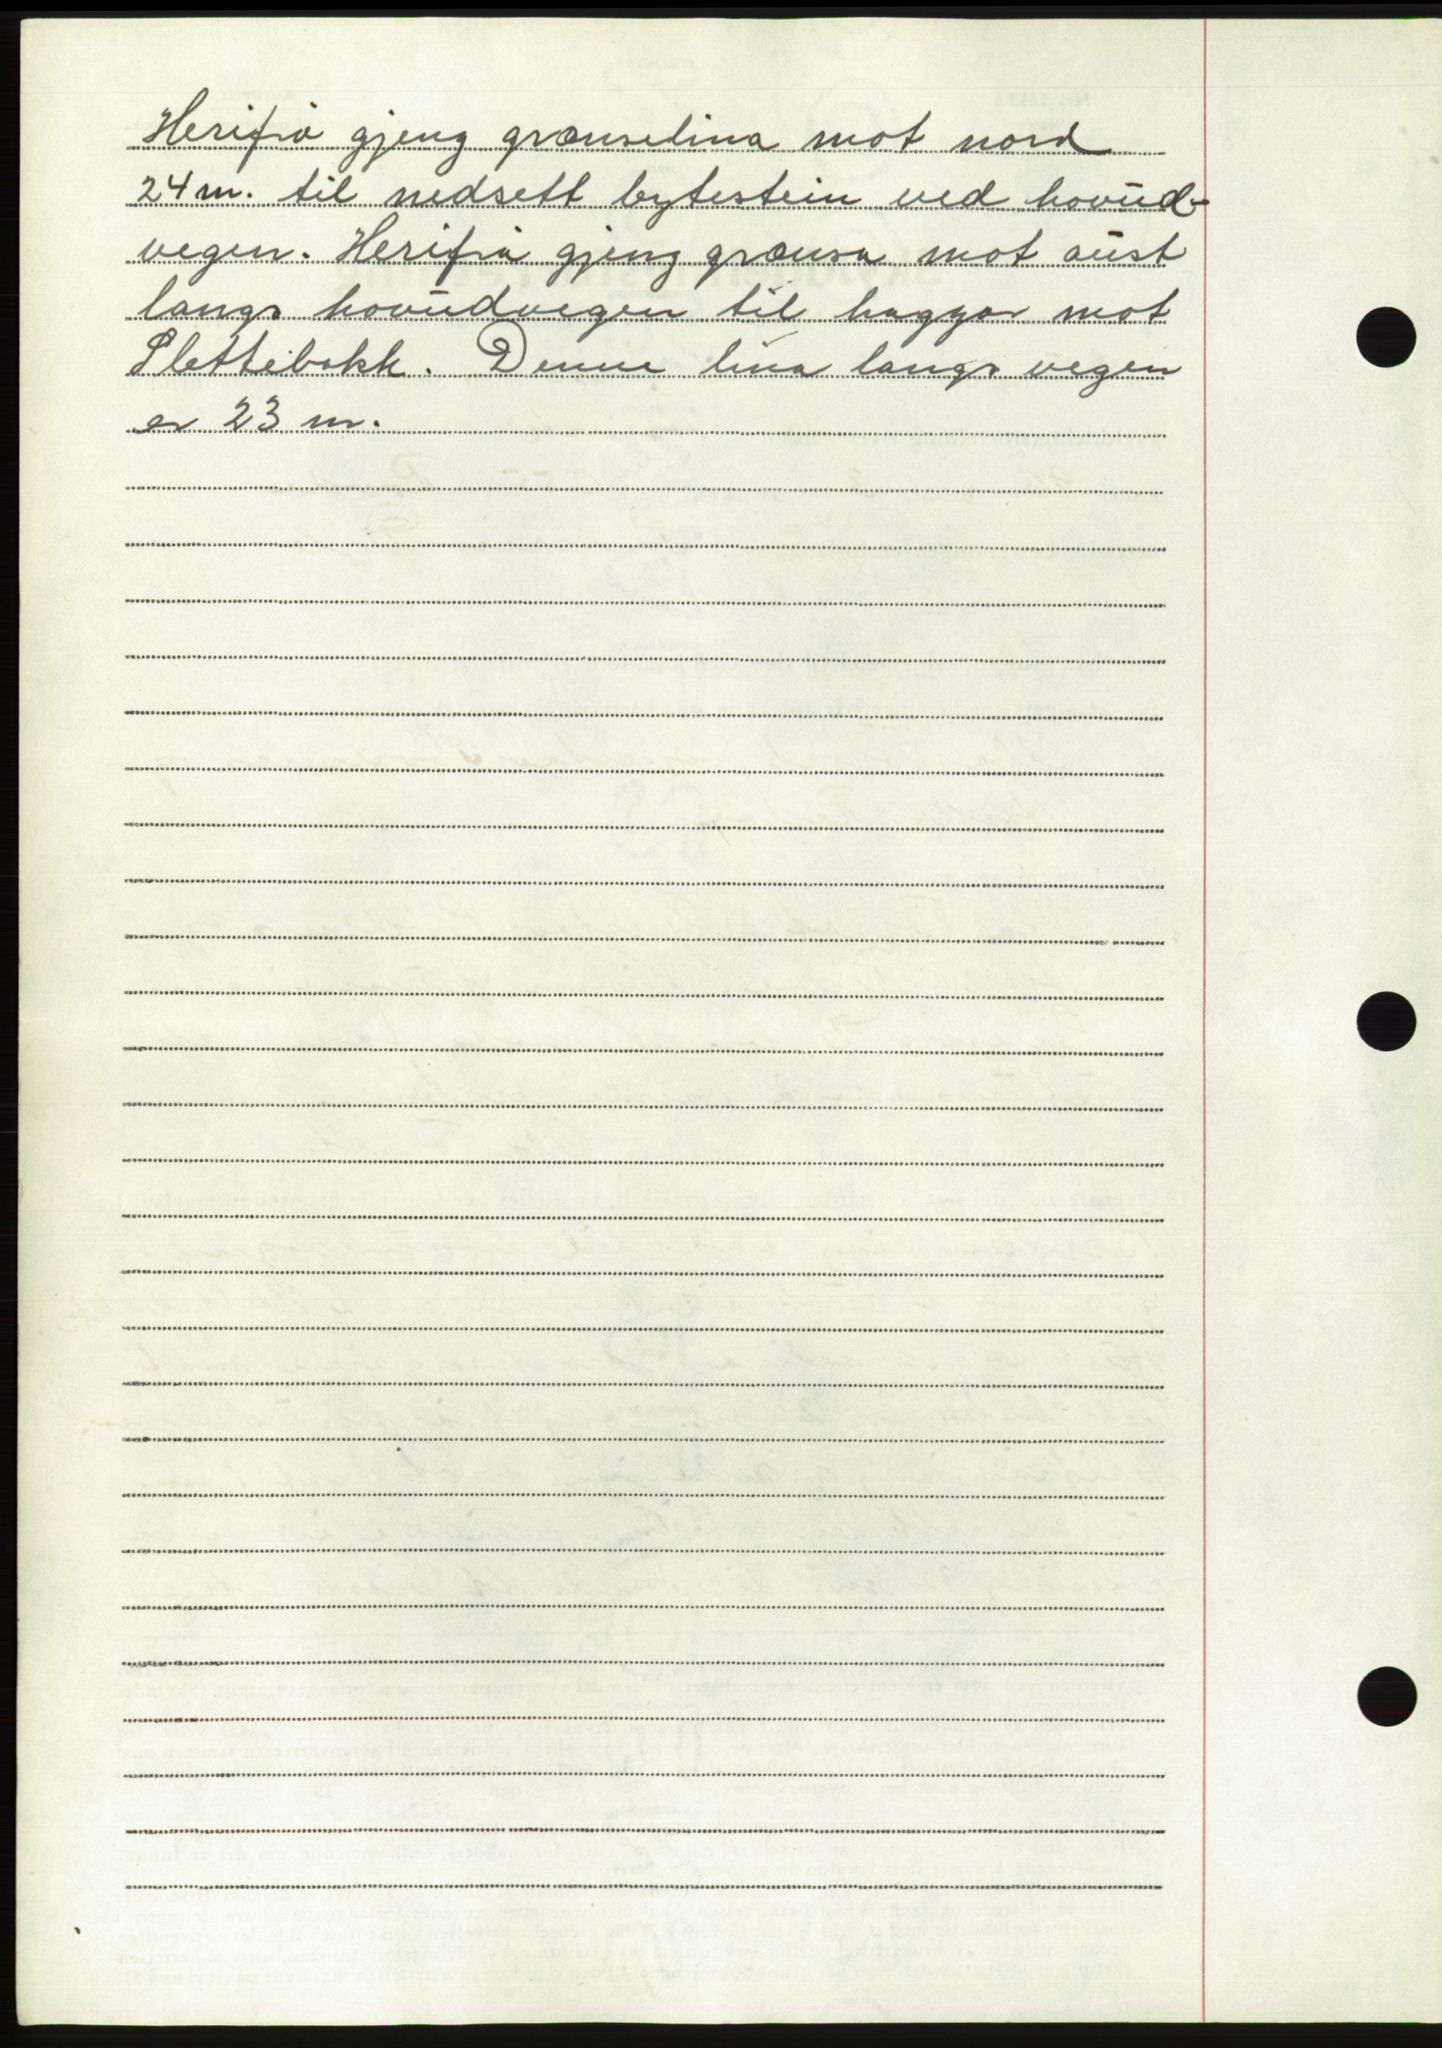 Herifrå gjeng grænselina mot nord
24 m. til nedsett bytestein ved hovud-
vegen. Herifrå gjeng grænsa mot aust
langs hovudvegen til haggar mot
Slettebakk. Denne lina langs vegen
er 23 m.